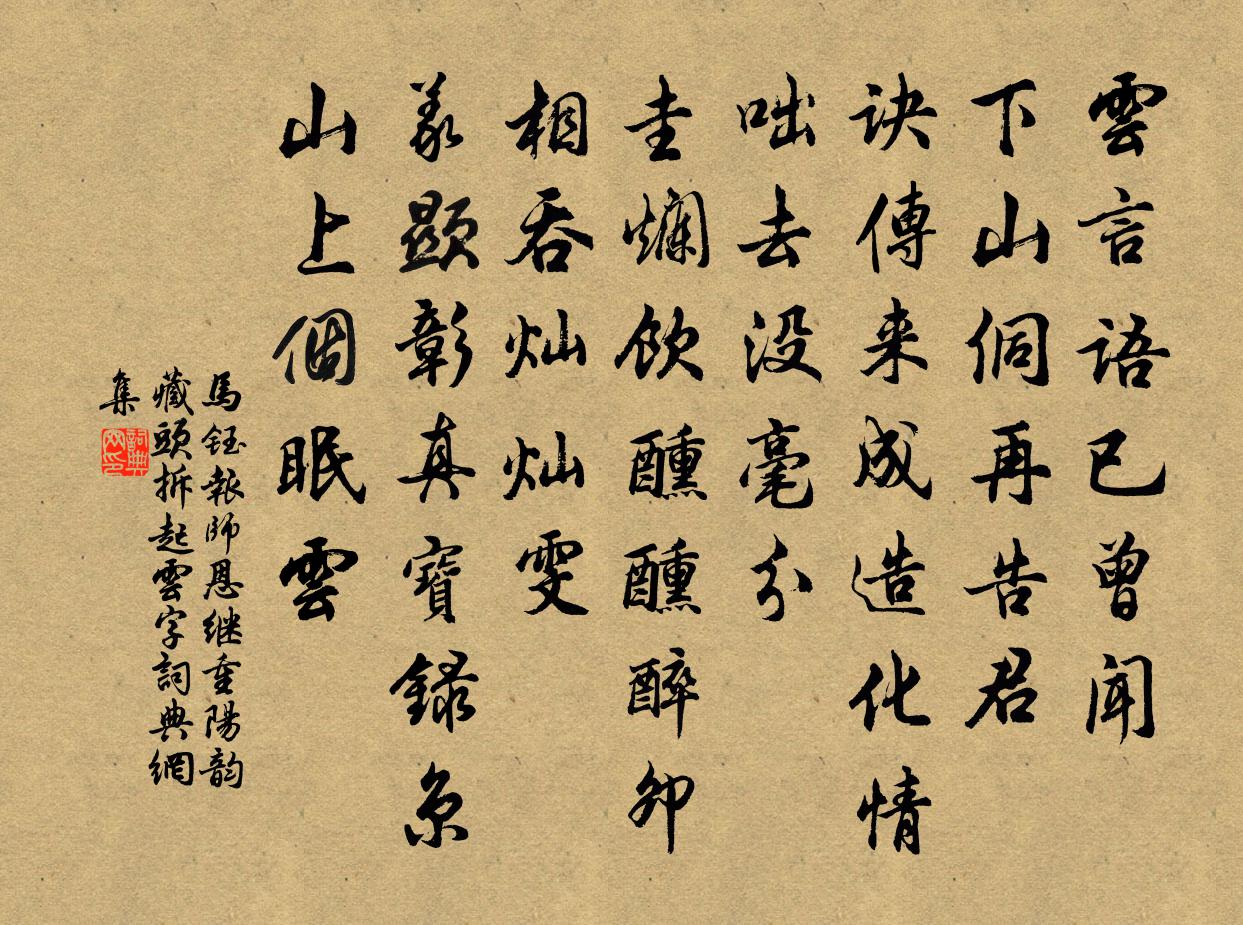 雲言語已曾聞
下山侗再告君
訣傳来成造化情
咄去没毫分
圭爛飲醺醺醉卯
相吞灿灿雯
羕顯彰真寶録京
山上個眠雲
馬鈺報師恩继重陽韵
藏頭拆起雲字詞典網
集
詞典网印